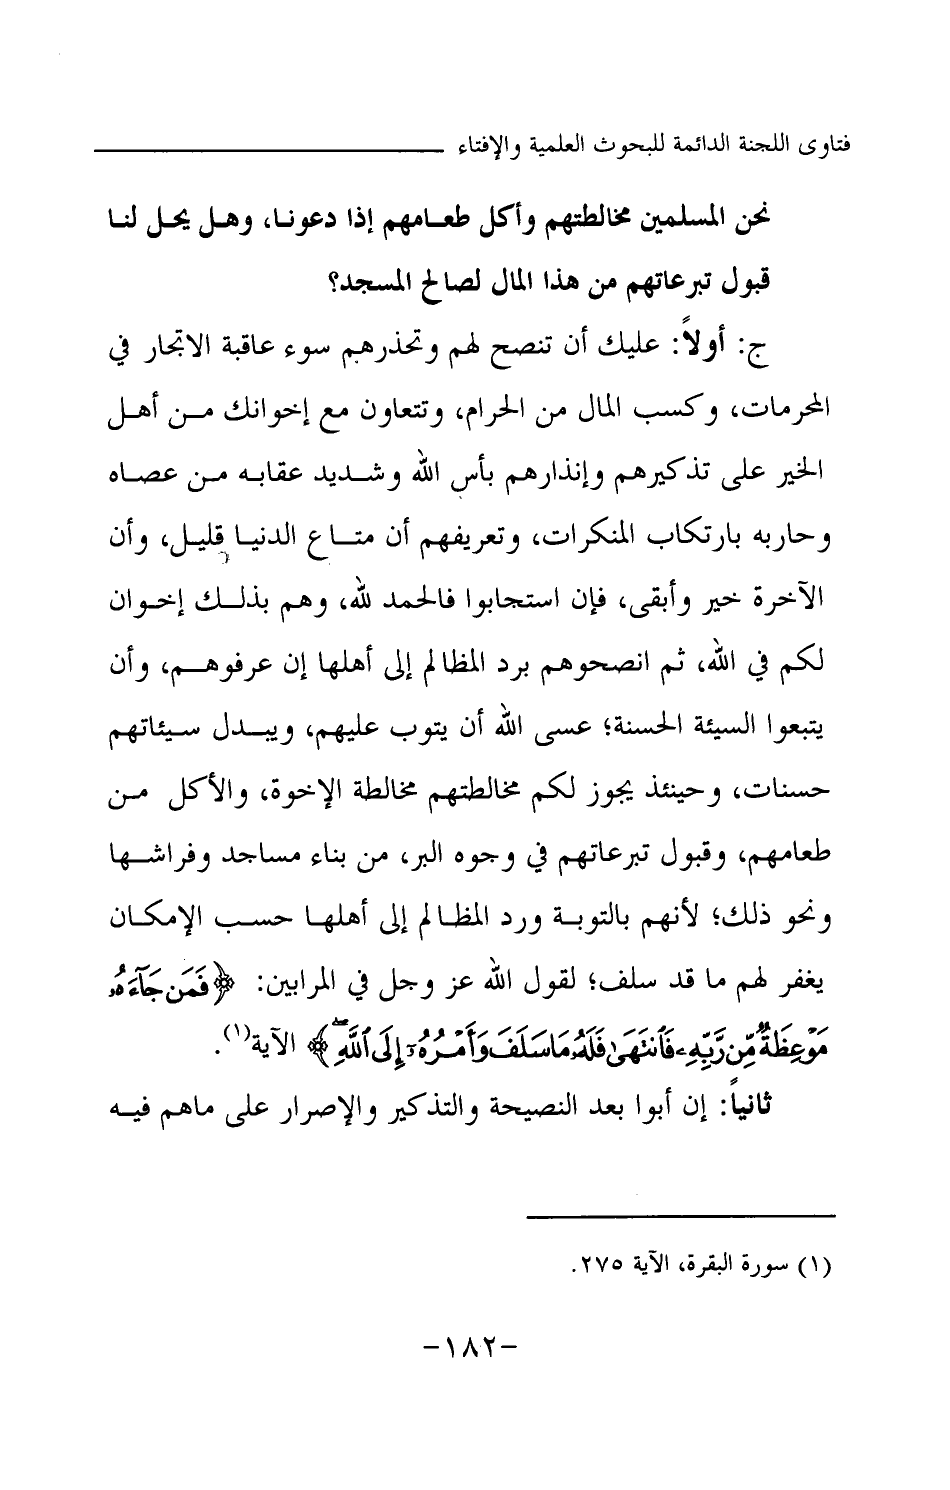 فتاوى اللجنة الدائمة للبحوث العلمية والإفتاء
نحن المسلمين مخالطتهم وأكل طعامهم إذا دعونا، وهل يحل لنا
قبول تبرعاتهم من هذا المال لصالح المسجد؟
ج: أولاً: عليك أن تنصح لهم وتحذرهم سوء عاقبة الاتجار في
المحرمات، وكسب المال من الحرام، وتتعاون مع إخوانك من أهل
الخير على تذكيرهم وإنذارهم بأس الله وشديد عقابه من عصاه
وحاربه بارتكاب المنكرات، وتعريفهم أن متاع الدنيا قليل، وأن
الآخرة خير وأبقى، فإن استجابوا فالحمد لله، وهم بذلك إخوان
لكم في الله، ثم انصحوهم برد المظالم إلى أهلها إن عرفوهم، وأن
يتبعوا السيئة الحسنة؛ عسى الله أن يتوب عليهم، ويبدل سيئاتهم
حسنات، وحينئذ يجوز لكم مخالطتهم مخالطة الإخوة، والأكل من
طعامهم، وقبول تبرعاتهم في وجوه البر، من بناء مساجد وفراشها
ونحو ذلك؛ لأنهم بالتوبة ورد المظالم إلى أهلها حسب الإمكان
يغفر لهم ما قد سلف؛ لقول الله عز وجل في المرابين: ﴿فَمَن جَآءَهُۥ
مَوۡعِظَةٞ مِّن رَّبِّهِۦ فَٱنتَهَىٰ فَلَهُۥ مَا سَلَفَ وَأَمۡرُهُۥٓ إِلَى ٱللَّهِۖ﴾ الآية(١).
ثانياً: إن أبوا بعد النصيحة والتذكير والإصرار على ماهم فيه
(١) سورة البقرة، الآية ٢٧٥.
-١٨٢-